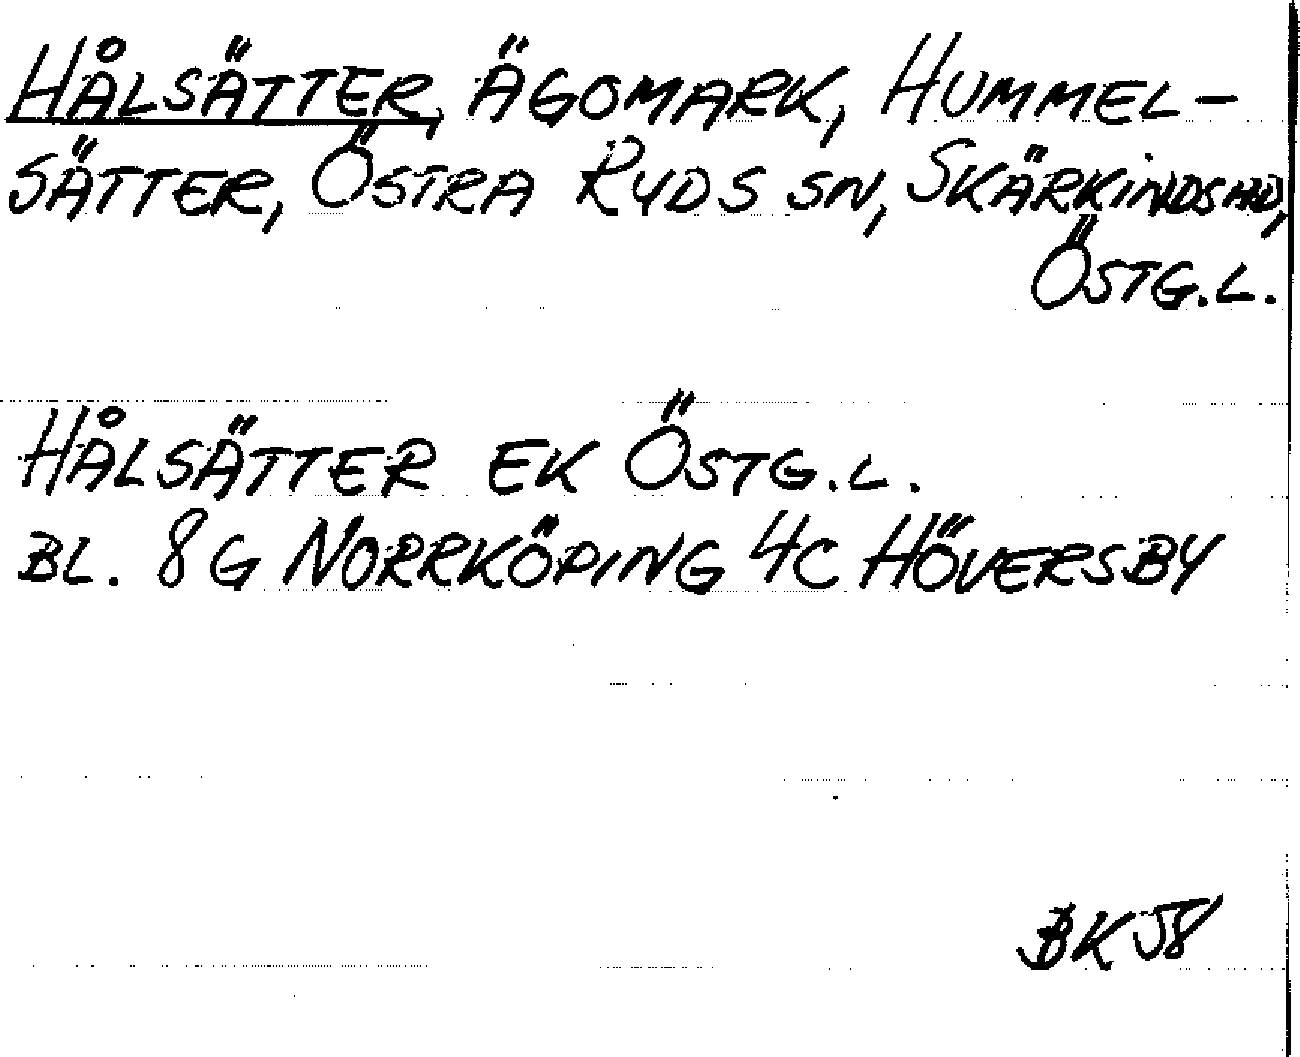 HÅLSÄTTER, ÄGOMARK, HUMMEL-
SÄTTER, ÖSTRA RYDS SN, SKÄRKINDS HD,
ÖSTG.L.
HÅLSÄTTER EK ÖSTG.L.
BL. 8G NORRKÖPING 4C HÖVERSBY
BK 58